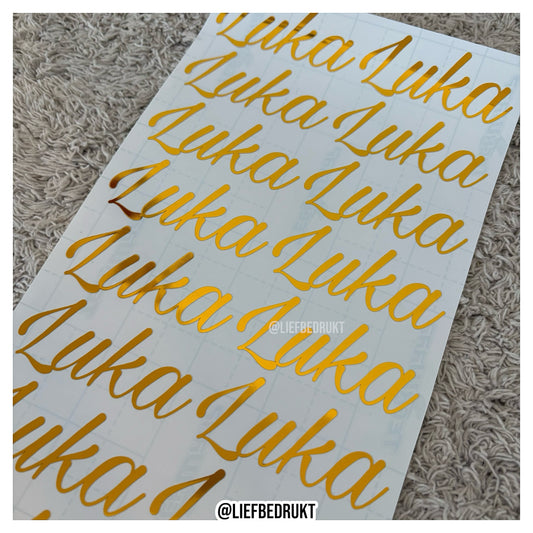 Luka Luka
Luka Luka
Luka Luka
Luka Luka
Luka Luka
@LIEFBEDRUKT
Luka Luka
uka Luka
@LIEFBEDRUKT